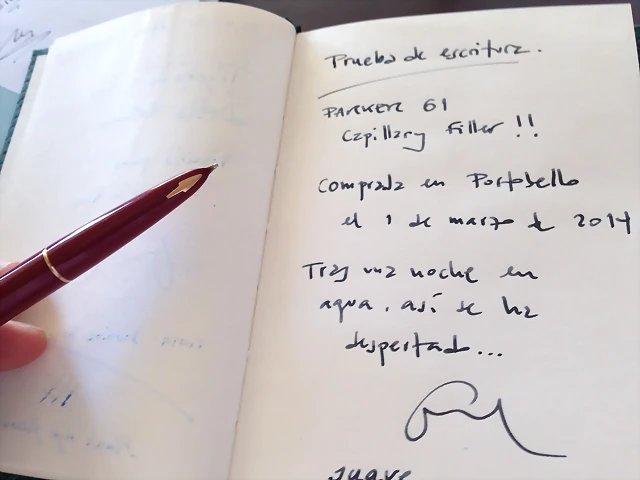 Prueba de escritura.
PARKER 61
Capillary Filler !!
Comprada en Portobello
el 1 de marzo de 2014
Tras una noche en
agua, así se ha
despertado...
suave